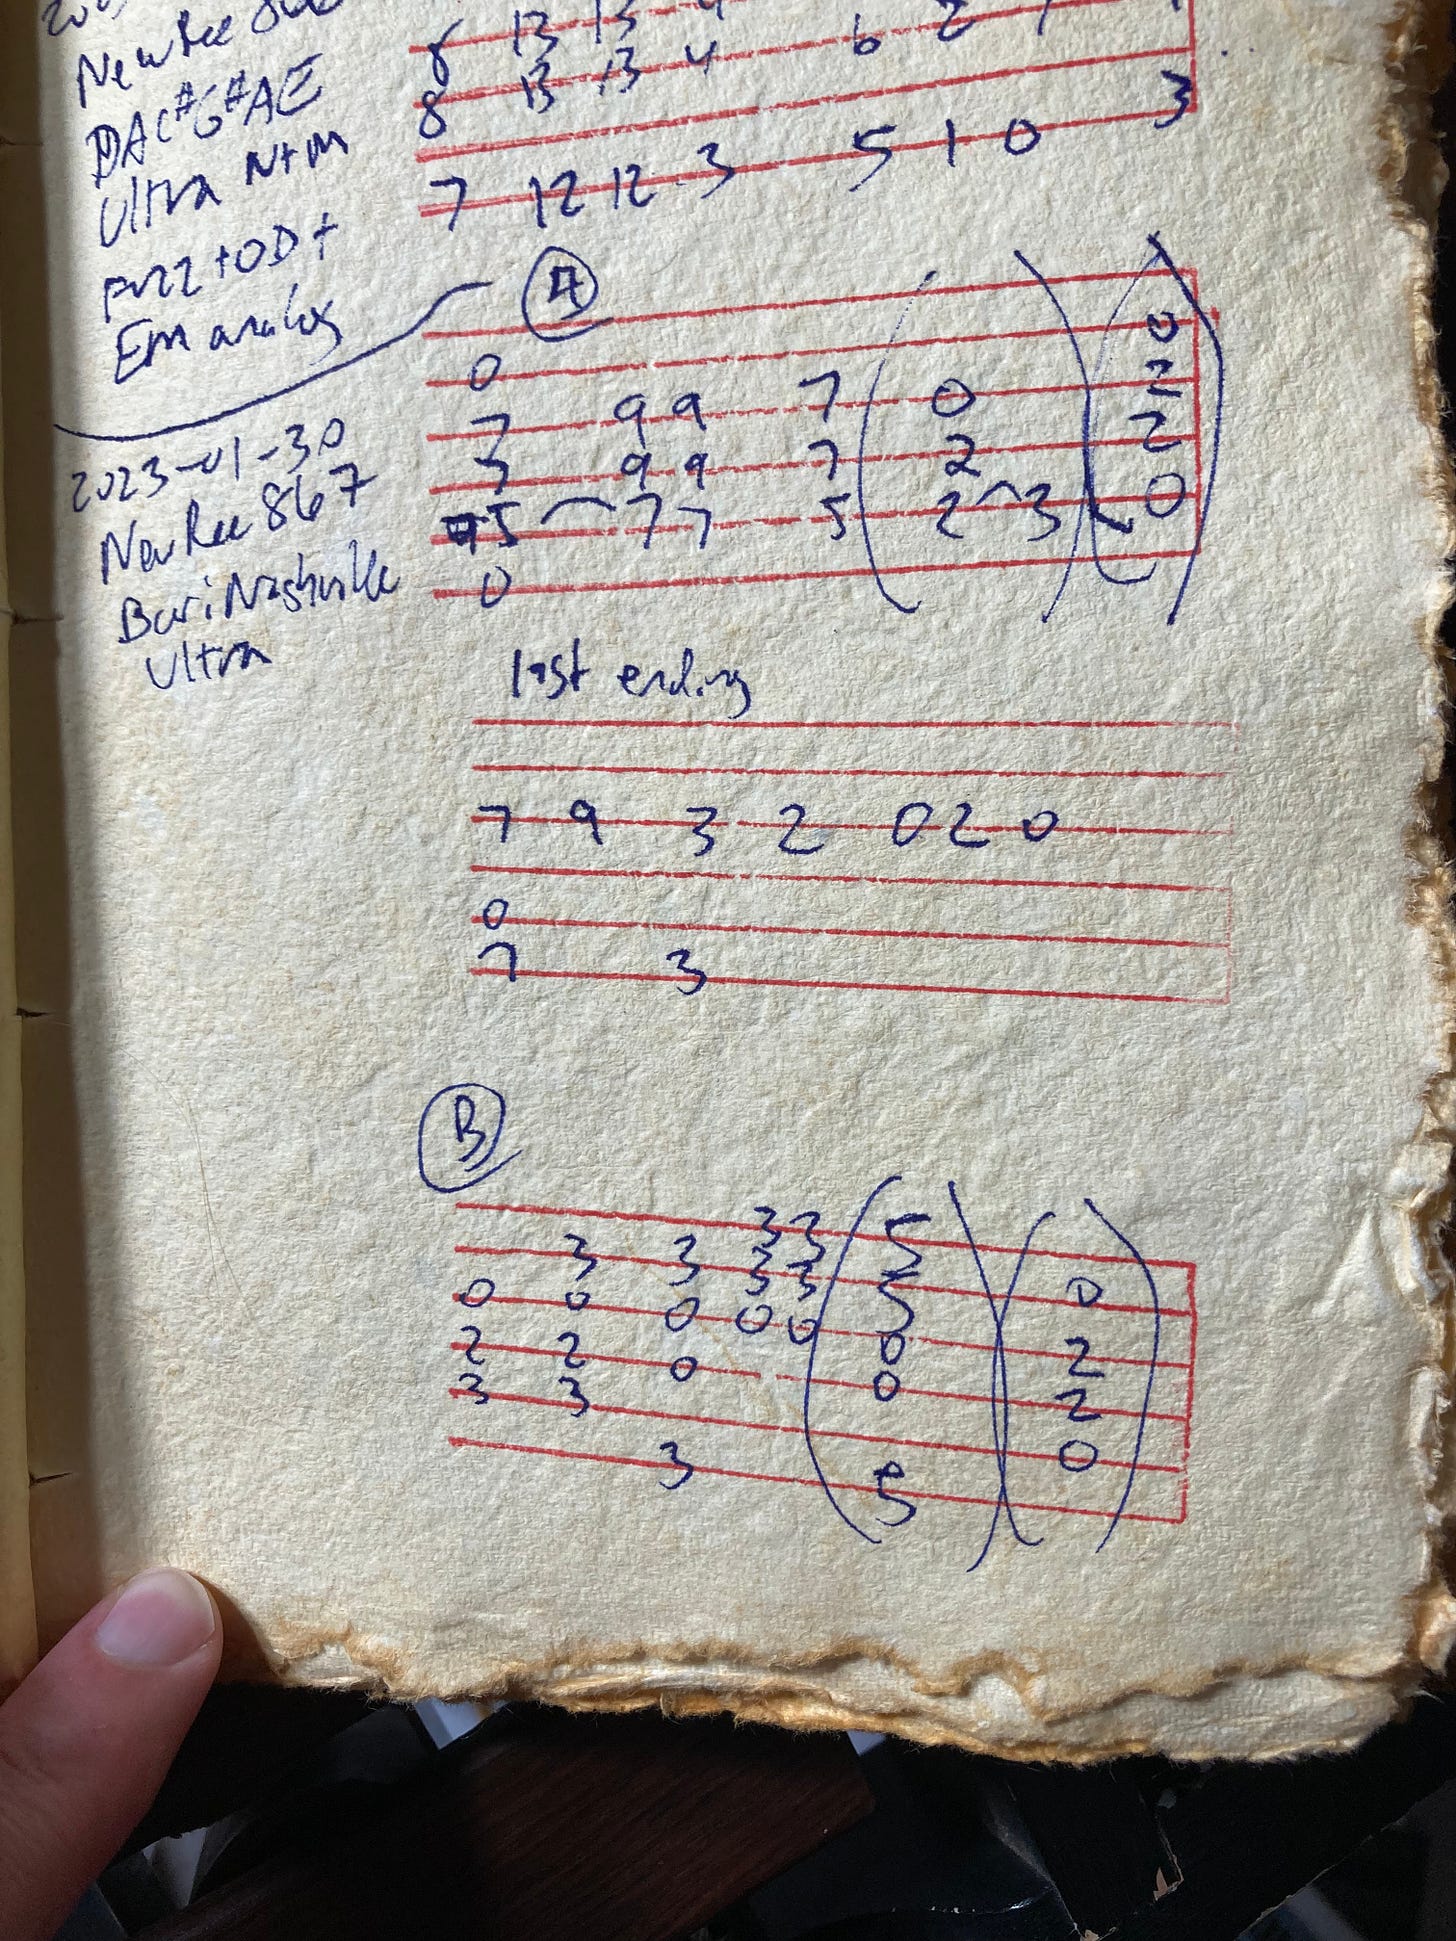 DAC#G#AE
Ultra N+M
Fuzz+OD+
EM analog
8 13 13 4 6 2 1
8 13 13 4
7 12 12 3 5 1 0 3
A
2023-01-30
New Rec 867
Bari Nashville
Ultra
0
0
7 9 9 7 0 2
7 9 9 7 2 2
5 7 7 5 2 3 0
0
last ending
7 9 3 2 0 2 0
0
7 3
B
3 3 5
3 3 3 3 5 0
0 0 0 0 0 0 2
2 2 0 0 2
3 3 0
3 5